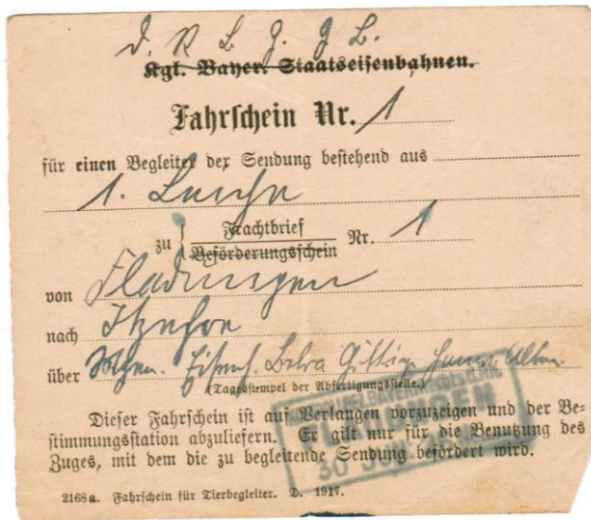 Kgl. Bayer. Staatseisenbahnen.
Fahrschein Nr. 1
für einen Begleiter der Sendung bestehend aus
1. Leiche
zu Frachtbrief Nr. 1
Beförderungsschein
von Fladungen
nach Itzehoe
über Mgen. Eisenh. Bebra
(Tagesstempel der Abfertigungsstelle.)
FLADUNGEN
30 JUN
Dieser Fahrschein ist auf Verlangen vorzuzeigen und der Be-
stimmungsstation abzuliefern. Er gilt nur für die Benutzung des
Zuges, mit dem die zu begleitende Sendung befördert wird.
2168a. Fahrschein für Tierbegleiter. D. 1917.